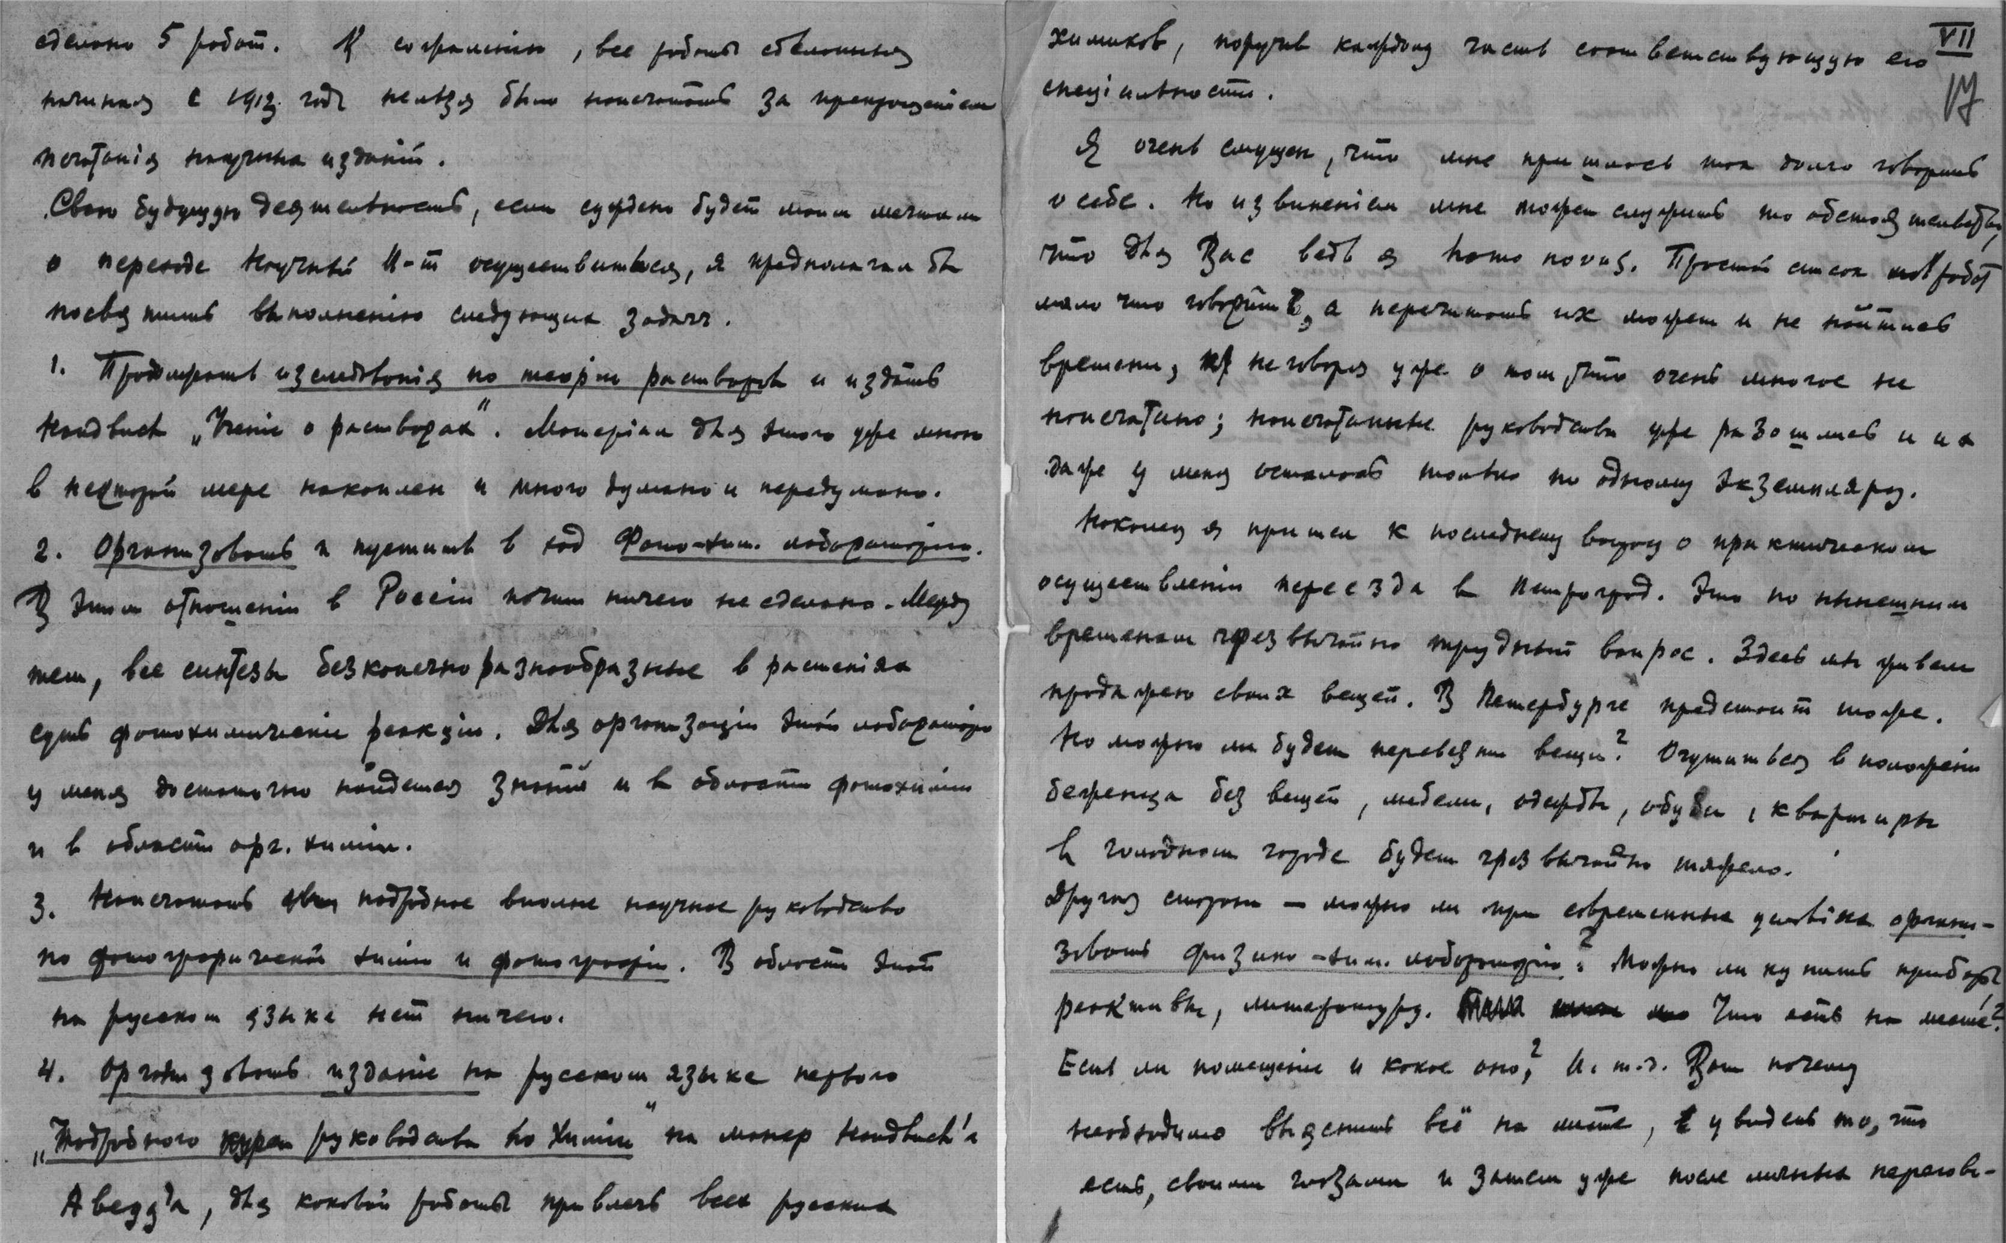 сделано 5 работ. К сожалению, все работы сделанныя
начиная с 1913 года нельзя было напечатать за прекращением
печатанія научных изданій.
Свою будущую деятельность, если суждено будет моим мечтам
о переходе Научный И-т осуществиться, я предполагал бы
посвятить выполнению следующих задач.
1. Продолжать изследованія по теоріи растворов и издать
Handbuch „Ученіе о растворах". Матеріал для этого уже мною
в некоторой мере накоплен и много думано и передумано.
2. Организовать и пустить в ход Фото-хим. лабораторію.
В этом отношеніи в Россіи почти ничего не сделано. Между
тем, все синтезы безконечно разнообразные в растеніях
суть фотохимическіе реакціи. Для организаціи этой лабораторіи
у меня достаточно найдется знаній и в области фотохиміи
и в области орг. химіи.
3. Напечатать подробное вполне научное руководство
по фотографической химіи и фотографіи. В области этой
на русском языке нет ничего.
4. Организовать изданіе на русском языке первого
„Подробного курса руководства по Химіи" на манер Handbuch'а
Абегг'а, для каковой работы привлечь всех русских
VII
17
химиков, поручив каждому часть соответствующую его
спеціальности.
Я очень смущен, что мне пришлось так долго говорить
о себе. Но извинением мне может служить то обстоятельство,
что для Вас ведь я homo novus. Простой список моих работ
мало что говорит, а перечитать их может и не найтись
времени, не говоря уже о том, что очень многое не
напечатано; напечатанные руководства уже разошлись и их
даже у меня осталось только по одному экземпляру.
Наконец я пришел к последнему вопросу о практическом
осуществленіи переезда в Петроград. Это по нынешним
временам чрезвычайно трудный вопрос. Здесь мы живем
продажею своих вещей. В Петербурге предстоит тоже.
Но можно ли будет перевезти вещи? Очутиться в положеніи
беженца без вещей, мебели, одежды, обуви, квартиры
в голодном городе будет чрезвычайно тяжело.
Другая сторона — можно ли при современных условіях органи-
зовать физико-хим. лабораторію? Можно ли купить приборы,
реактивы, литературу. Что есть на месте?
Есть ли помещеніе и какое оно? И. т. д. Вот почему
необходимо выяснить всё на месте, увидеть то, что
есть, своими глазами и затем уже после личных перегово-